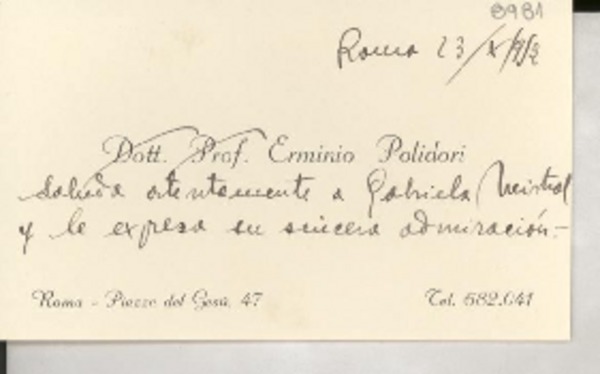 8981
Roma 23/X/952
Dott. Prof. Erminio Polidori
Saluda atentamente a Gabriela Mistral
y le expresa su sincera admiración.-
Roma - Piazza del Gesù, 47
Tel. 682.041